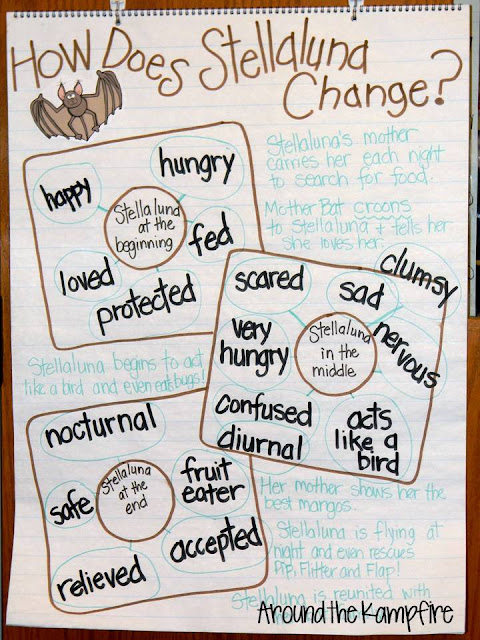 How Does Stellaluna
Change?
Stellaluna's mother
carries her each night
to search for food.
Mother Bat croons
to Stellaluna + tells her
she loves her.
happy
hungry
Stellaluna
at the
beginning
fed
loved
protected
scared
sad
clumsy
very
hungry
Stellaluna
in the
middle
nervous
confused
diurnal
acts
like a
bird
Stellaluna begins to act
like a bird and even eats bugs!
nocturnal
Stellaluna
at the
end
safe
fruit
eater
accepted
relieved
Her mother shows her the
best mangos.
Stellaluna is flying at
night and even rescues
Pip, Flitter and Flap!
Stellaluna is reunited with
Around the Kampfire